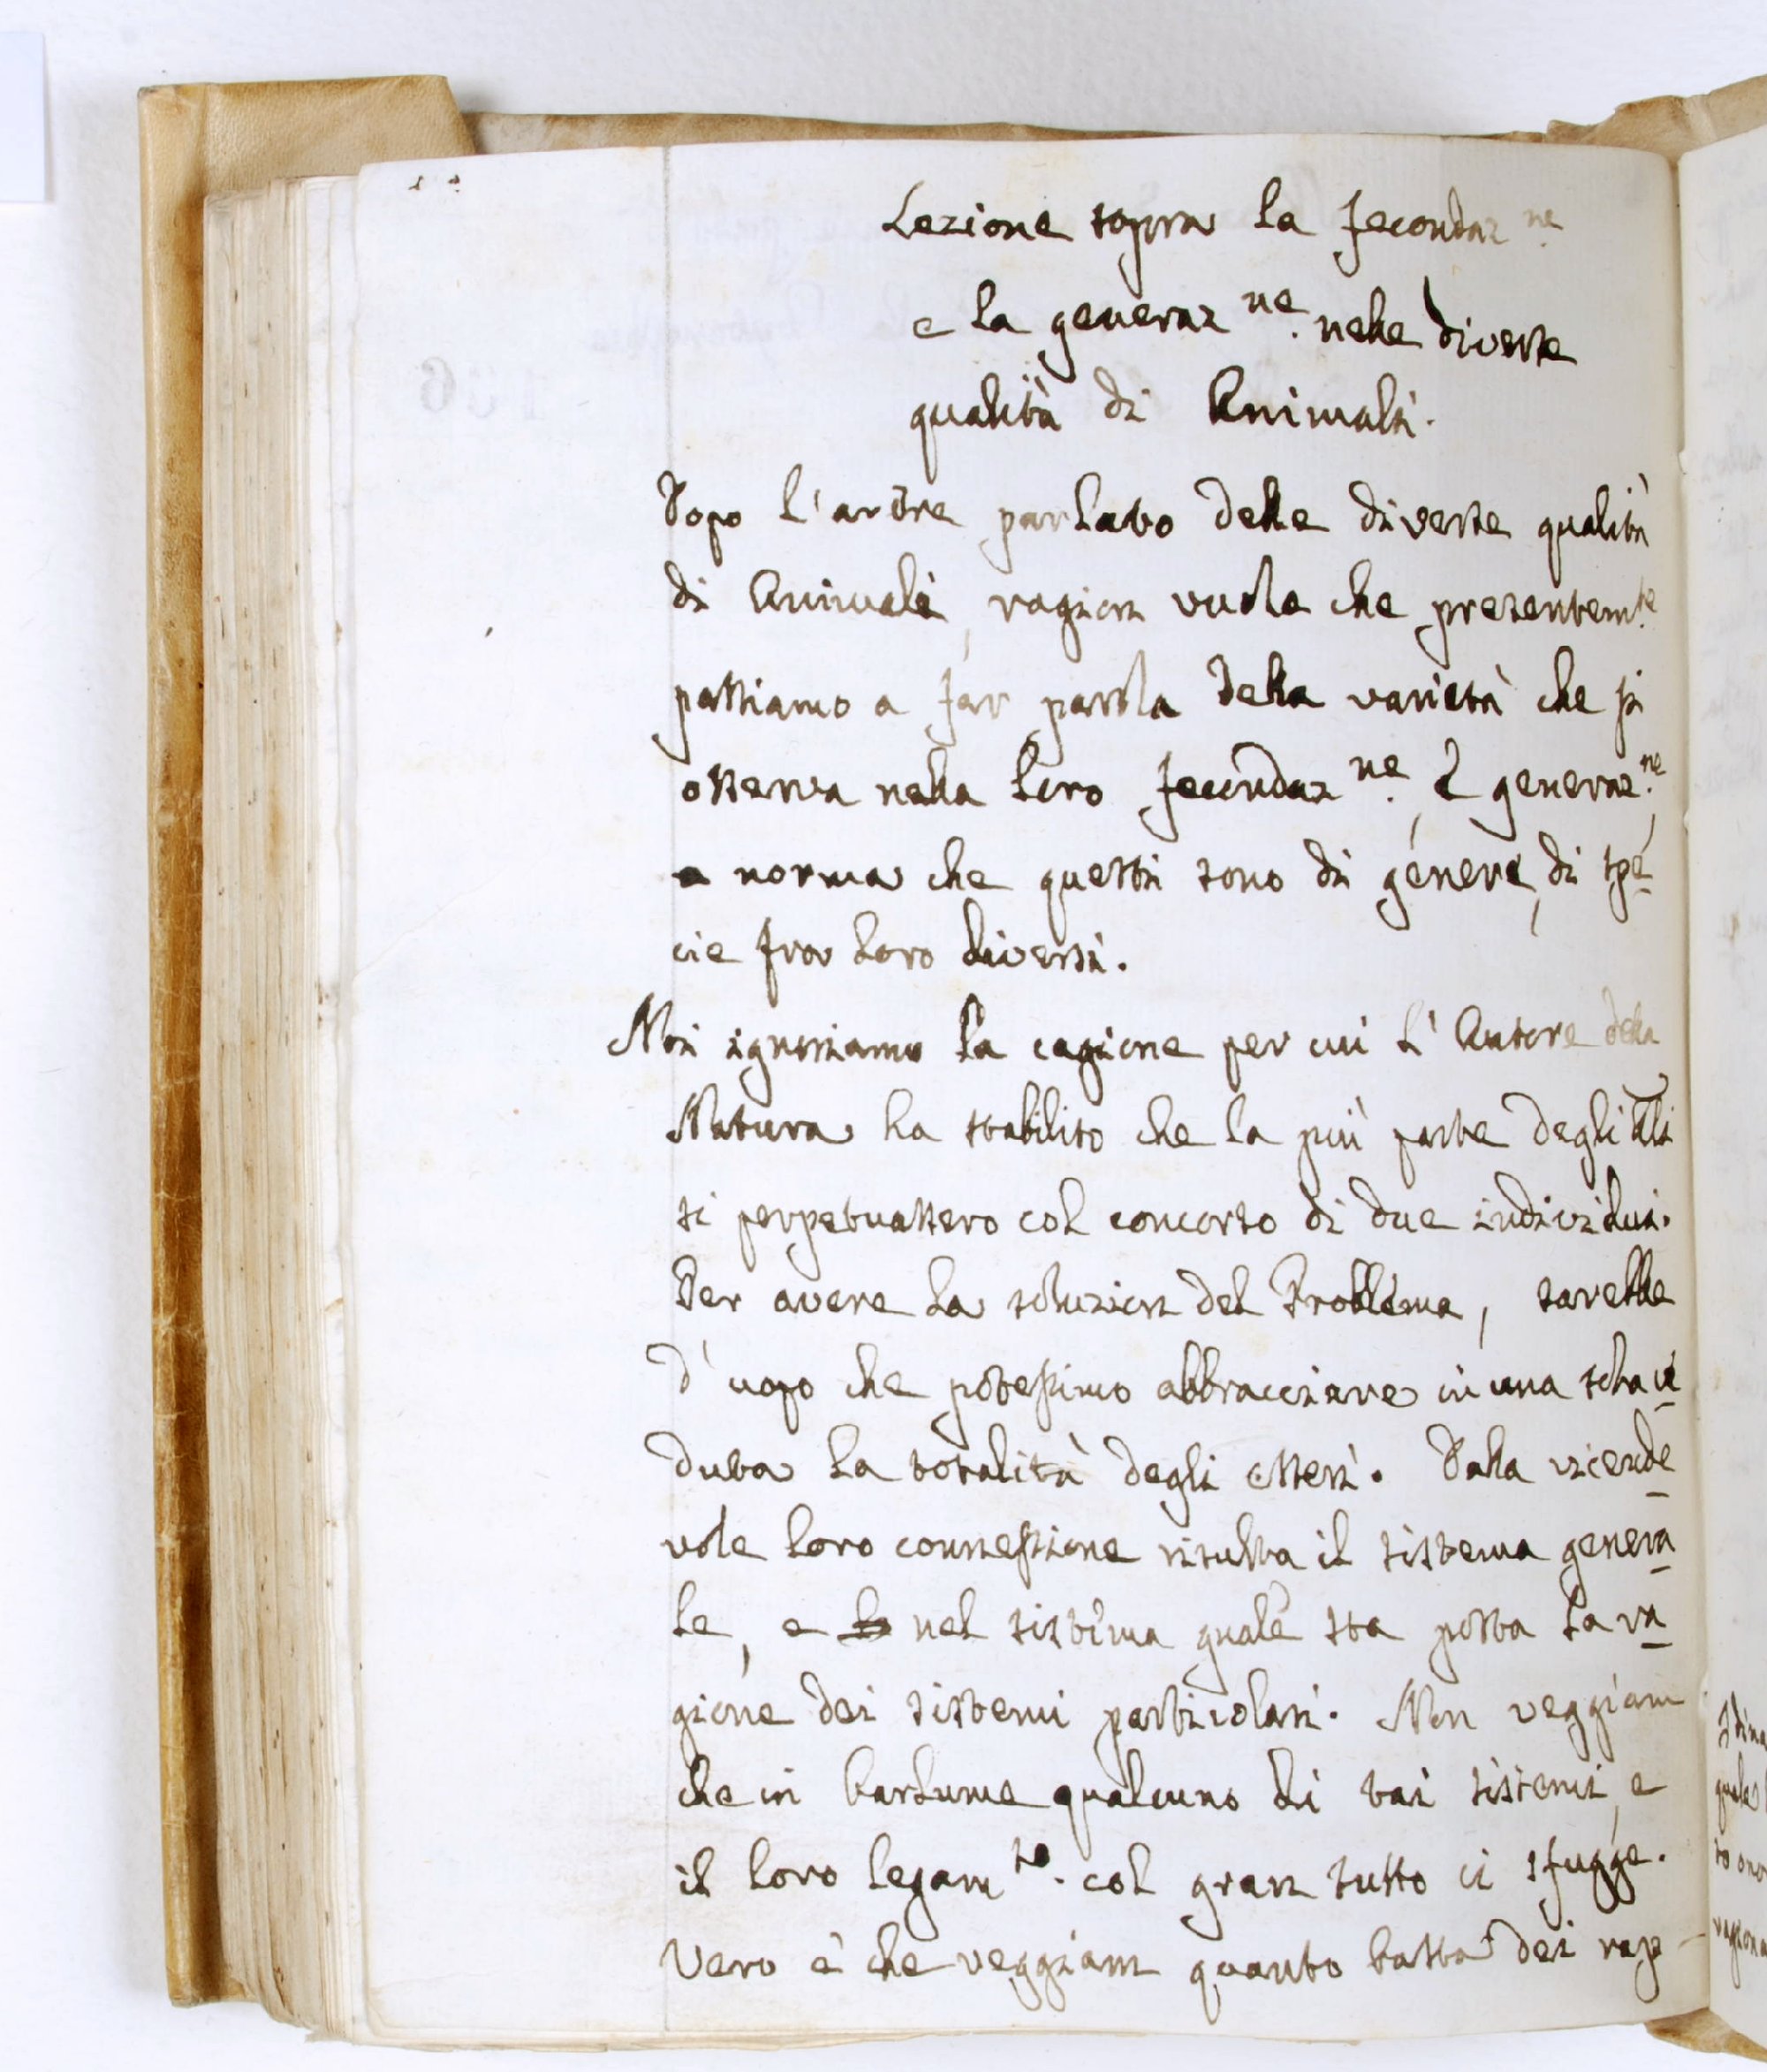 Lezione sopra la fecondaz.ne
e la generaz.ne nelle diverse
qualità di Animali.
Dopo l'avere parlato delle diverse qualità
di Animali, ragion vuole che presentem.te
passiamo a far parola della varietà che si
osserva nella loro fecondaz.ne, e generaz.ne,
a norma che questi sono di genere, di spe-
cie fra loro diversi.
Noi ignoriamo la cagione per cui l'Autore della
Natura ha stabilito che la più parte degli
si perpetuassero col concorso di due individui.
Per avere la soluzion del Problema, sarebbe
d'uopo che potessimo abbracciare in una sola ve-
duta la totalità degli esseri. Dalla vicende-
vole loro connessione risulta il sistema genera-
le, e nel sistema gnale sta posta la ra-
gione dei sistemi particolari. Non veggiam
che in barlume qualcuno di tai sistemi, e
il loro legam.to col gran tutto ci sfugge.
Vero è che veggiam quanto basta dei rap-